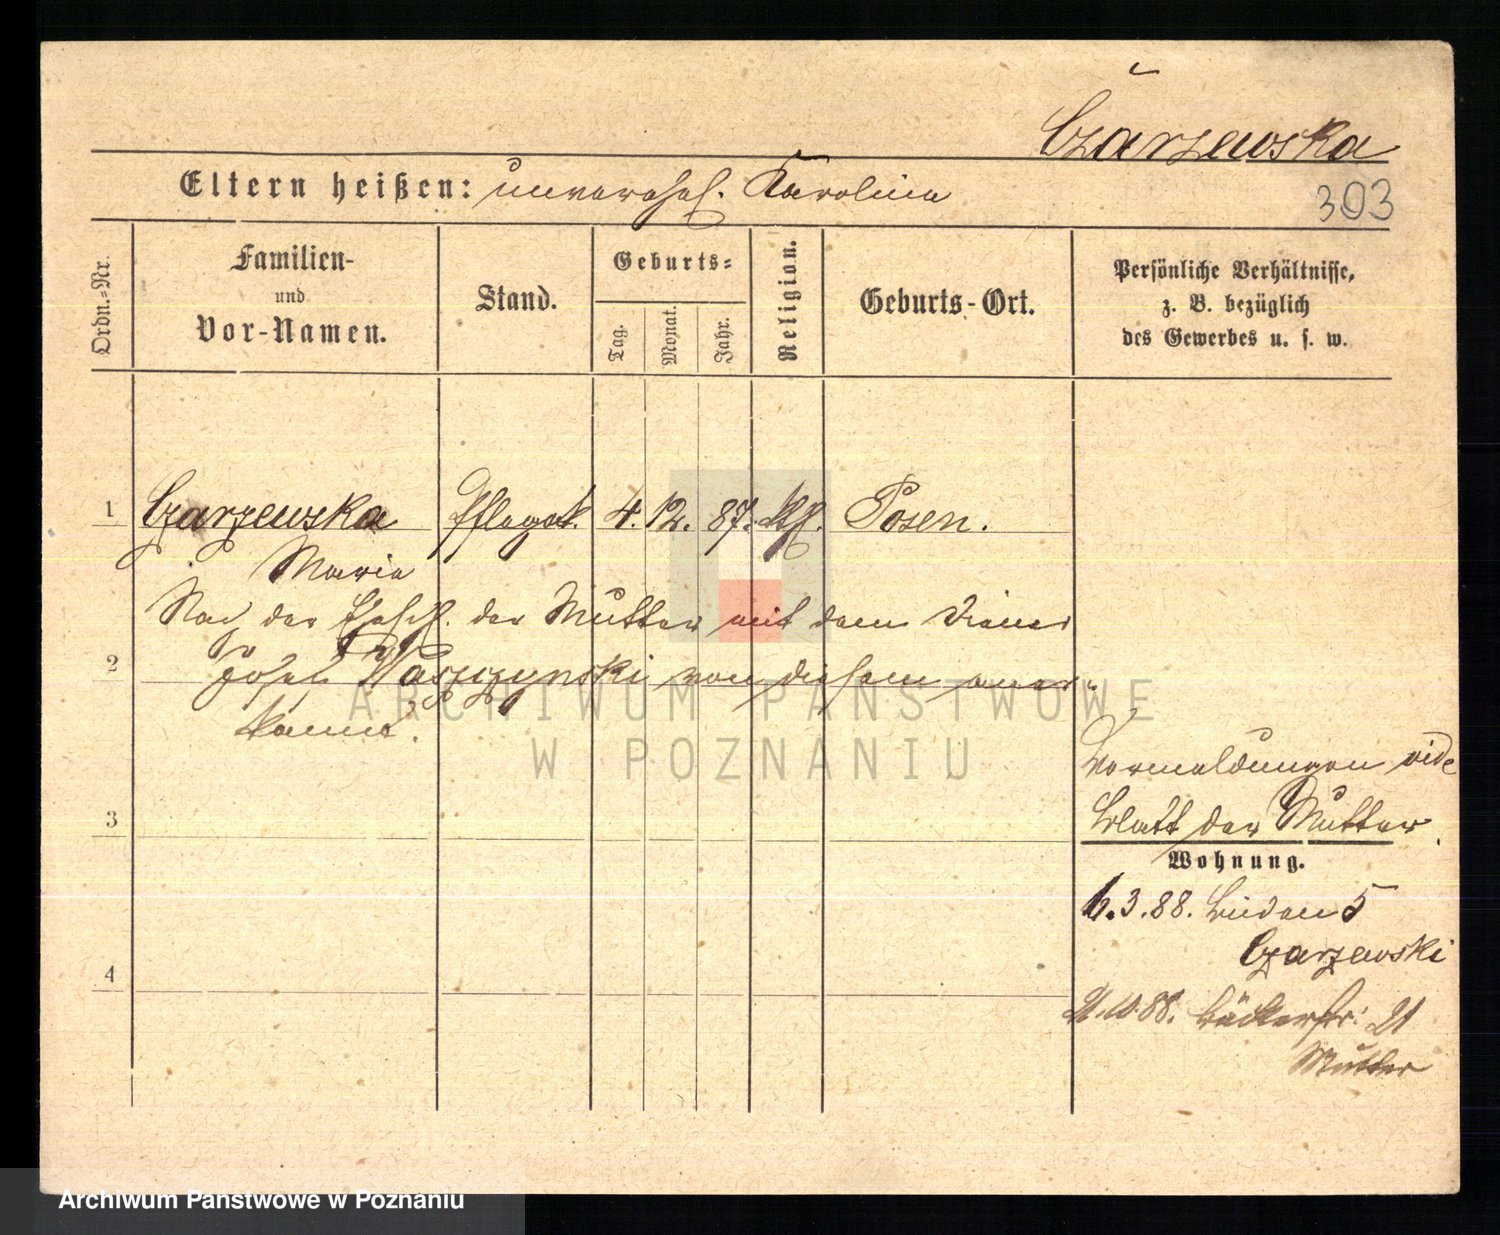 Czarzewska
Eltern heißen: unverehel. Karolina
303
Ordn.-Nr.
Familien-
und
Vor-Namen.
Stand.
Geburts-
Tag.
Monat.
Jahr.
Religion.
Geburts-Ort.
Persönliche Verhältnisse,
z. B. bezüglich
des Gewerbes u. s. w.
1 Czarzewska Pflegek. 4. 12. 87. kth. Posen.
Maria
der Ehesch. der Mutter mit dem Diener
2 Josef Waszczynski von diesem aner-
kannt.
ARCHIWUM PAŃSTWOWE
W POZNANIU
Vermeldungen vide
3 Blatt der Mutter.
Wohnung.
6.3.88. Linden 5
Czarzewski
4
21.10.88. Bäckerstr: 21
Mutter
Archiwum Państwowe w Poznaniu